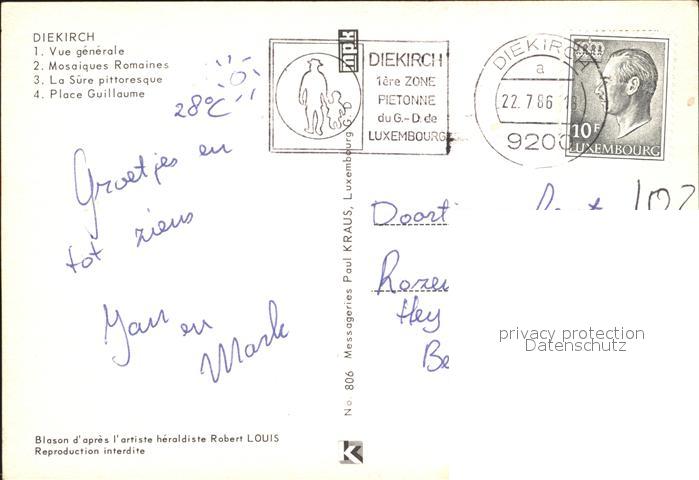 DIEKIRCH
1. Vue générale
2. Mosaiques Romaines
3. La Sûre pittoresque
4. Place Guillaume
28°C
Groetjes en
tot ziens
Jan en
Mark
Blason d'après l'artiste héraldiste Robert LOUIS
Reproduction interdite
npk
No. 806 Messageries Paul KRAUS, Luxembourg G. D.
K
DIEKIRCH
1ère ZONE
PIETONNE
du G.-D. de
LUXEMBOURG
DIEKIRCH
a
22.7.86
9200
10F
LUXEMBOURG
102
Doort
Rozen
Hey
Be
privacy protection
Datenschutz